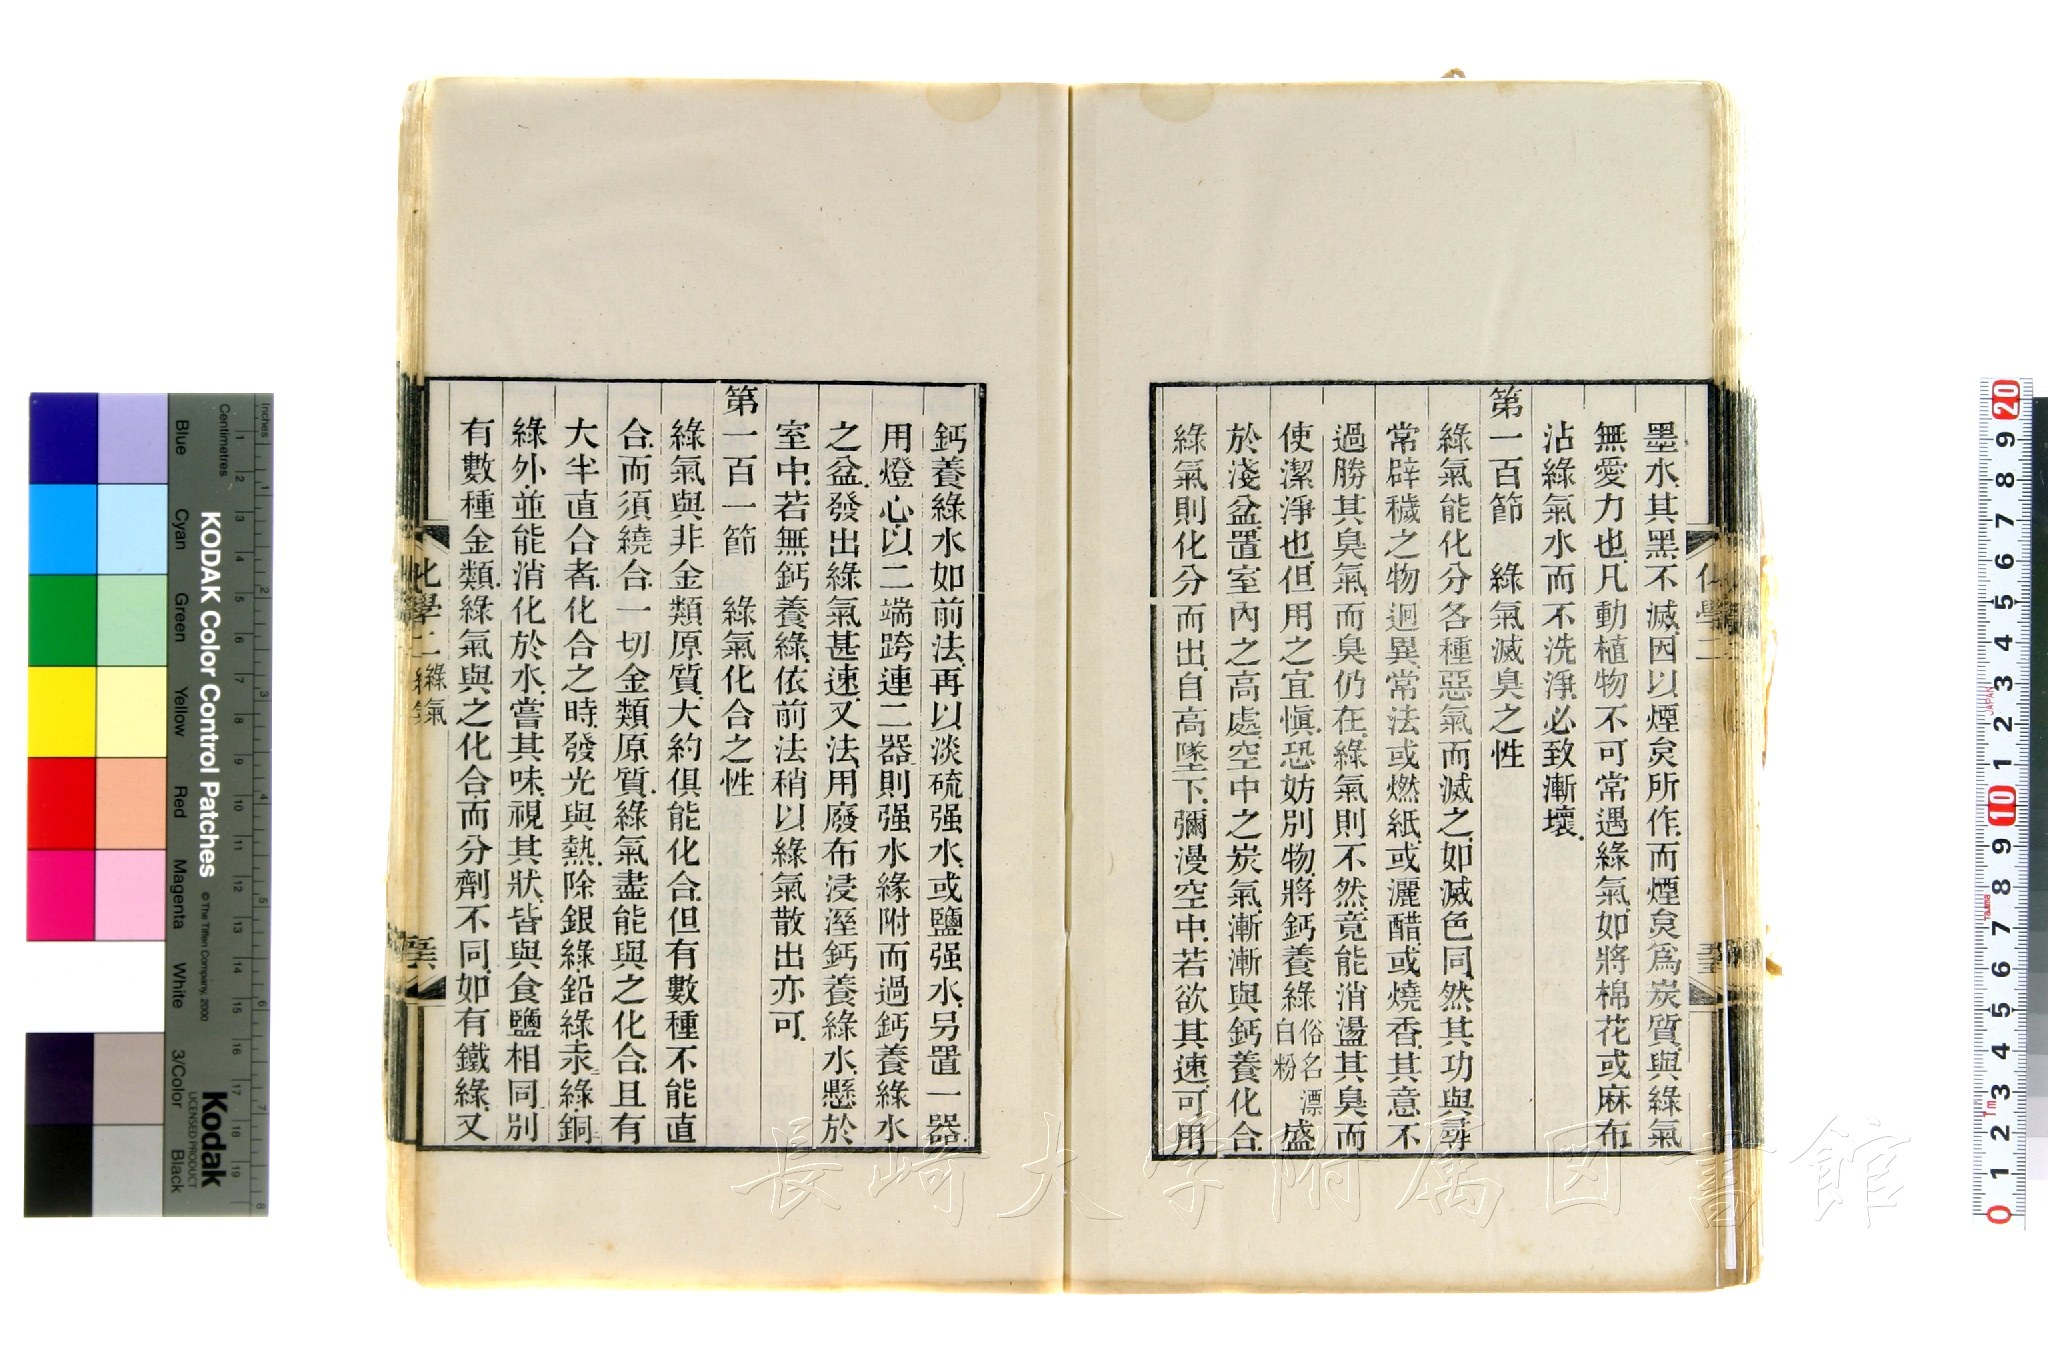 墨水、其黑不滅、因以煙炱所作、而煙炱爲炭質、與綠氣
無愛力也、凡動植物不可常遇綠氣、如將棉花或麻布
沾綠氣水而不洗淨、必致漸壞、
第一百節　綠氣滅臭之性
綠氣能化分各種惡氣而滅之、如滅色同、然其功與尋
常辟穢之物迥異、常法或燃紙、或灑醋、或燒香、其意不
過勝其臭氣、而臭仍在、綠氣則不然、竟能消盪其臭而
使潔淨也、但用之宜愼、恐妨別物、將鈣養綠俗名漂白粉盛
於淺盆、置室內之高處、空中之炭氣漸漸與鈣養化合、
綠氣則化分而出、自高墜下、彌漫空中、若欲其速、可用
化學二
鈣養綠水如前法、再以淡硫强水、或鹽强水、另置一器、
用燈心、以二端跨連二器、則强水緣附而過鈣養綠水
之盆、發出綠氣甚速、又法、用廢布浸溼鈣養綠水、懸於
室中、若無鈣養綠、依前法稍以綠氣散出亦可、
第一百一節　綠氣化合之性
綠氣與非金類原質、大約俱能化合、但有數種不能直
合、而須繞合、一切金類原質、綠氣盡能與之化合、且有
大半直合者、化合之時、發光與熱、除銀綠、鉛綠、汞綠、銅
綠外、並能消化於水、嘗其味、視其狀、皆與食鹽相同、別
有數種金類、綠氣與之化合而分劑不同、如有鐵綠、又
化學二 綠氣
長崎大学附属図書館
KODAK Color Control Patches
© The Tiffen Company, 2000
Kodak
LICENSED PRODUCT
Inches
Centimetres
Blue
Cyan
Green
Yellow
Red
Magenta
White
3/Color
Black
JAPAN